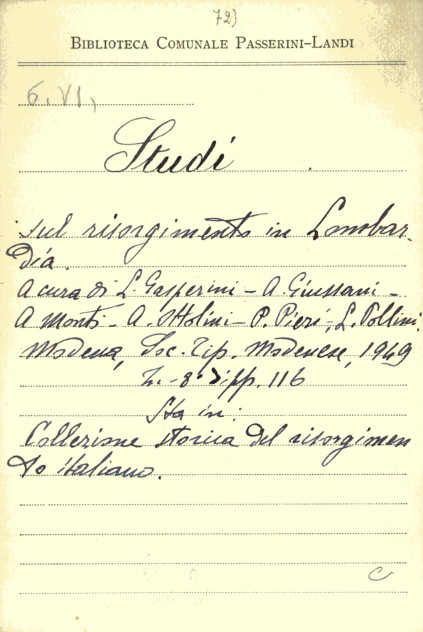 72)
BIBLIOTECA COMUNALE PASSERINI-LANDI
6. VI,
Studi
sul risorgimento in Lombar-
dia.
A cura di L. Gasperini - A. Giussani -
A Monti - A. Ottolini - P. Pieri, L. Pollini.
Modena, Soc. Tip. Modenese, 1949
in-8° pp. 116
Sta in:
Collezione storica del risorgimen
to italiano.
C